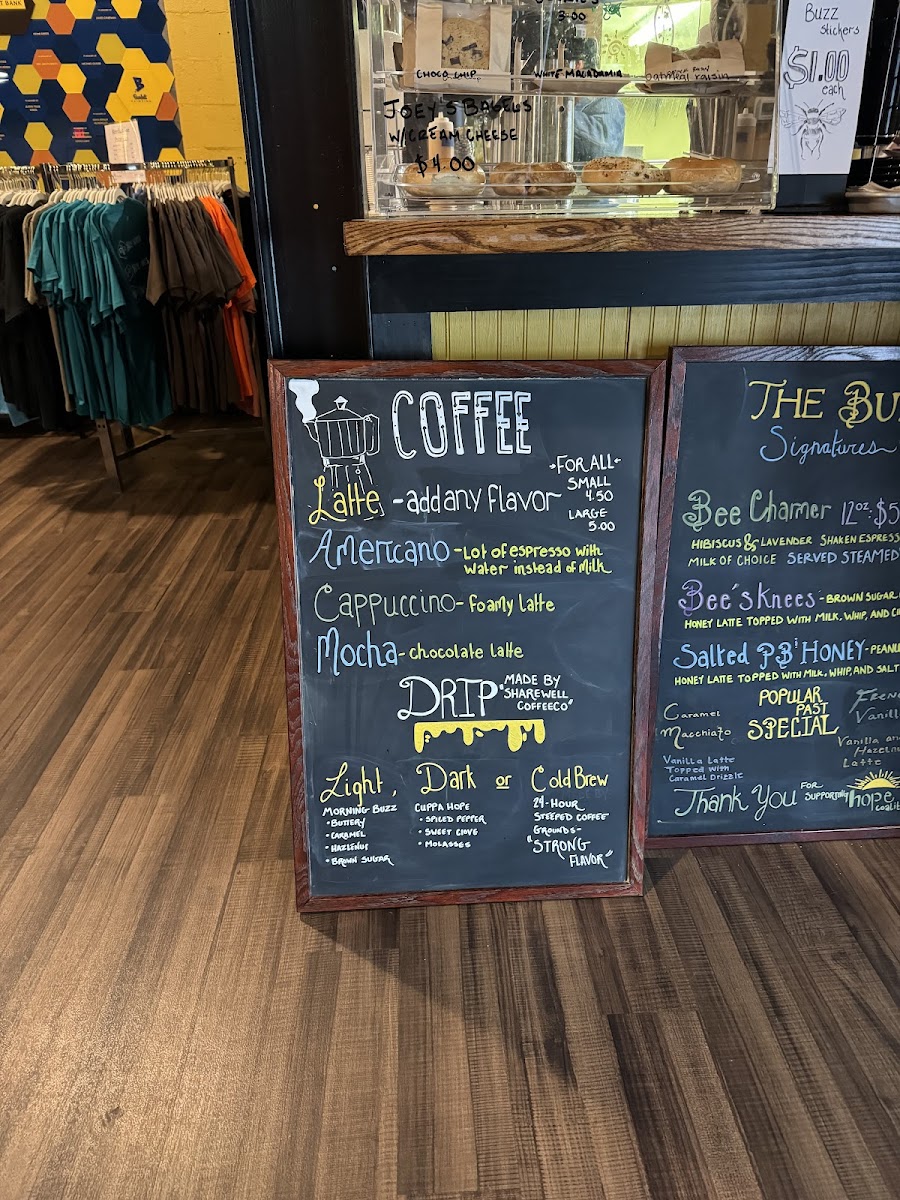 3.00
CHOCO CHIP
WHITE MACADAMIA
oatmeal raisin
JOEY'S BAGELS
W/CREAM CHEESE
$4.00
Buzz
stickers
$1.00
each
COFFEE
-FOR ALL-
SMALL
4.50
LARGE
5.00
Latte - add any flavor
Americano - Lot of espresso with
water instead of milk
Cappuccino - foamy latte
Mocha - chocolate latte
DRIP
MADE BY
"SHAREWELL
COFFEECO"
Light, Dark or Cold Brew
MORNING BUZZ
• BUTTERY
• CARAMEL
• HAZLENUS
• BROWN SUGAR
CUPPA HOPE
• SPICED PEPPER
• SWEET CLOVE
• MOLASSES
24-HOUR
STEEPED COFFEE
GROUNDS-
"STRONG
FLAVOR"
THE BU
Signatures
Bee Charmer 12oz: $5
HIBISCUS & LAVENDER SHAKEN ESPRESS
MILK OF CHOICE SERVED STEAMED
Bee's Knees - BROWN SUGAR
HONEY LATTE TOPPED WITH MILK, WHIP, AND C
Salted PB & HONEY - PEANU
HONEY LATTE TOPPED WITH MILK, WHIP, AND SALT
POPULAR
PAST
SPECIAL
Caramel
Macchiato
Vanilla Latte
Topped with
Caramel Drizzle
Frenc
Vanill
Vanilla an
Hazeln
Latte
Thank You FOR
SUPPORTING hope
coalit